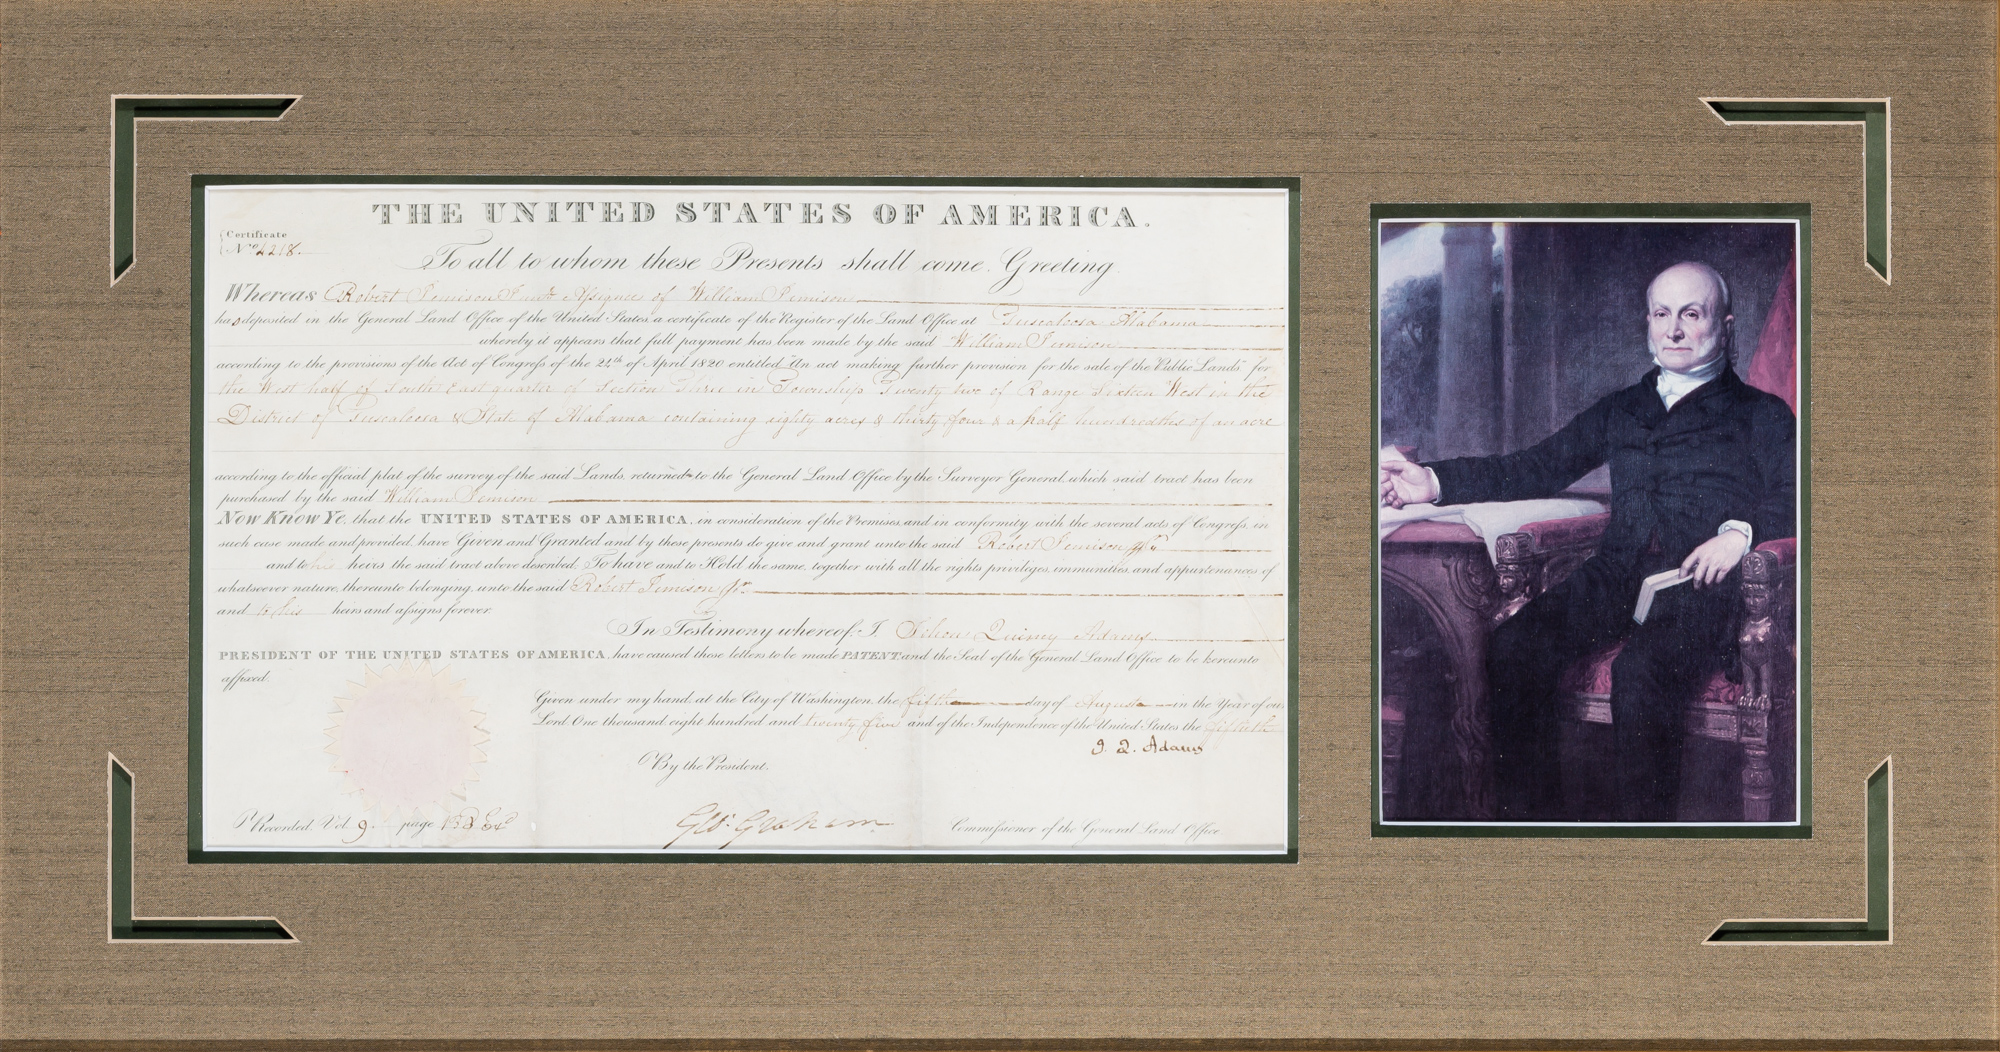 THE UNITED STATES OF AMERICA.
Certificate
No
To all to whom these Presents shall come, Greeting
Whereas Robert Jemison Junr Assignee of William Jemison
has deposited in the General Land Office of the United States, a certificate of the Register of the Land Office at Tuscaloosa Alabama
whereby it appears that full payment has been made by the said William Jemison
according to the provisions of the Act of Congress of the 24th of April 1820 entitled "An act making further provision for the sale of the Public Lands" for
the West half of South East quarter of Section Three in Township Twenty two of Range Sixteen West in the
District of Tuscaloosa & State of Alabama containing eighty acres & thirty four & a half hundredths of an acre
according to the official plat of the survey of the said Lands, returned to the General Land Office by the Surveyor General, which said tract has been
purchased by the said William Jemison
Now Know Ye, that the UNITED STATES OF AMERICA, in consideration of the Premises, and in conformity with the several acts of Congress, in
such case made and provided, have Given and Granted and by these presents do give and grant unto the said Robert Jemison Jr
and to his heirs the said tract above described, To have and to Hold the same, together with all the rights, priviliges, immunities, and appurtenances of
whatsoever nature, thereunto belonging, unto the said Robert Jemison Jr.
and to his heirs and assigns forever.
In Testimony whereof, I, John Quincy Adams
PRESIDENT OF THE UNITED STATES OF AMERICA, have caused these letters to be made PATENT and the Seal of the General Land Office to be hereunto
affixed.
Given under my hand, at the City of Washington, the fifth day of August in the Year of our
Lord, One thousand, eight hundred and twenty five and of the Independence of the United States the fiftieth
J. Q. Adams
By the President.
Recorded, Vol. 9. page
Geo: Graham Commissioner of the General Land Office